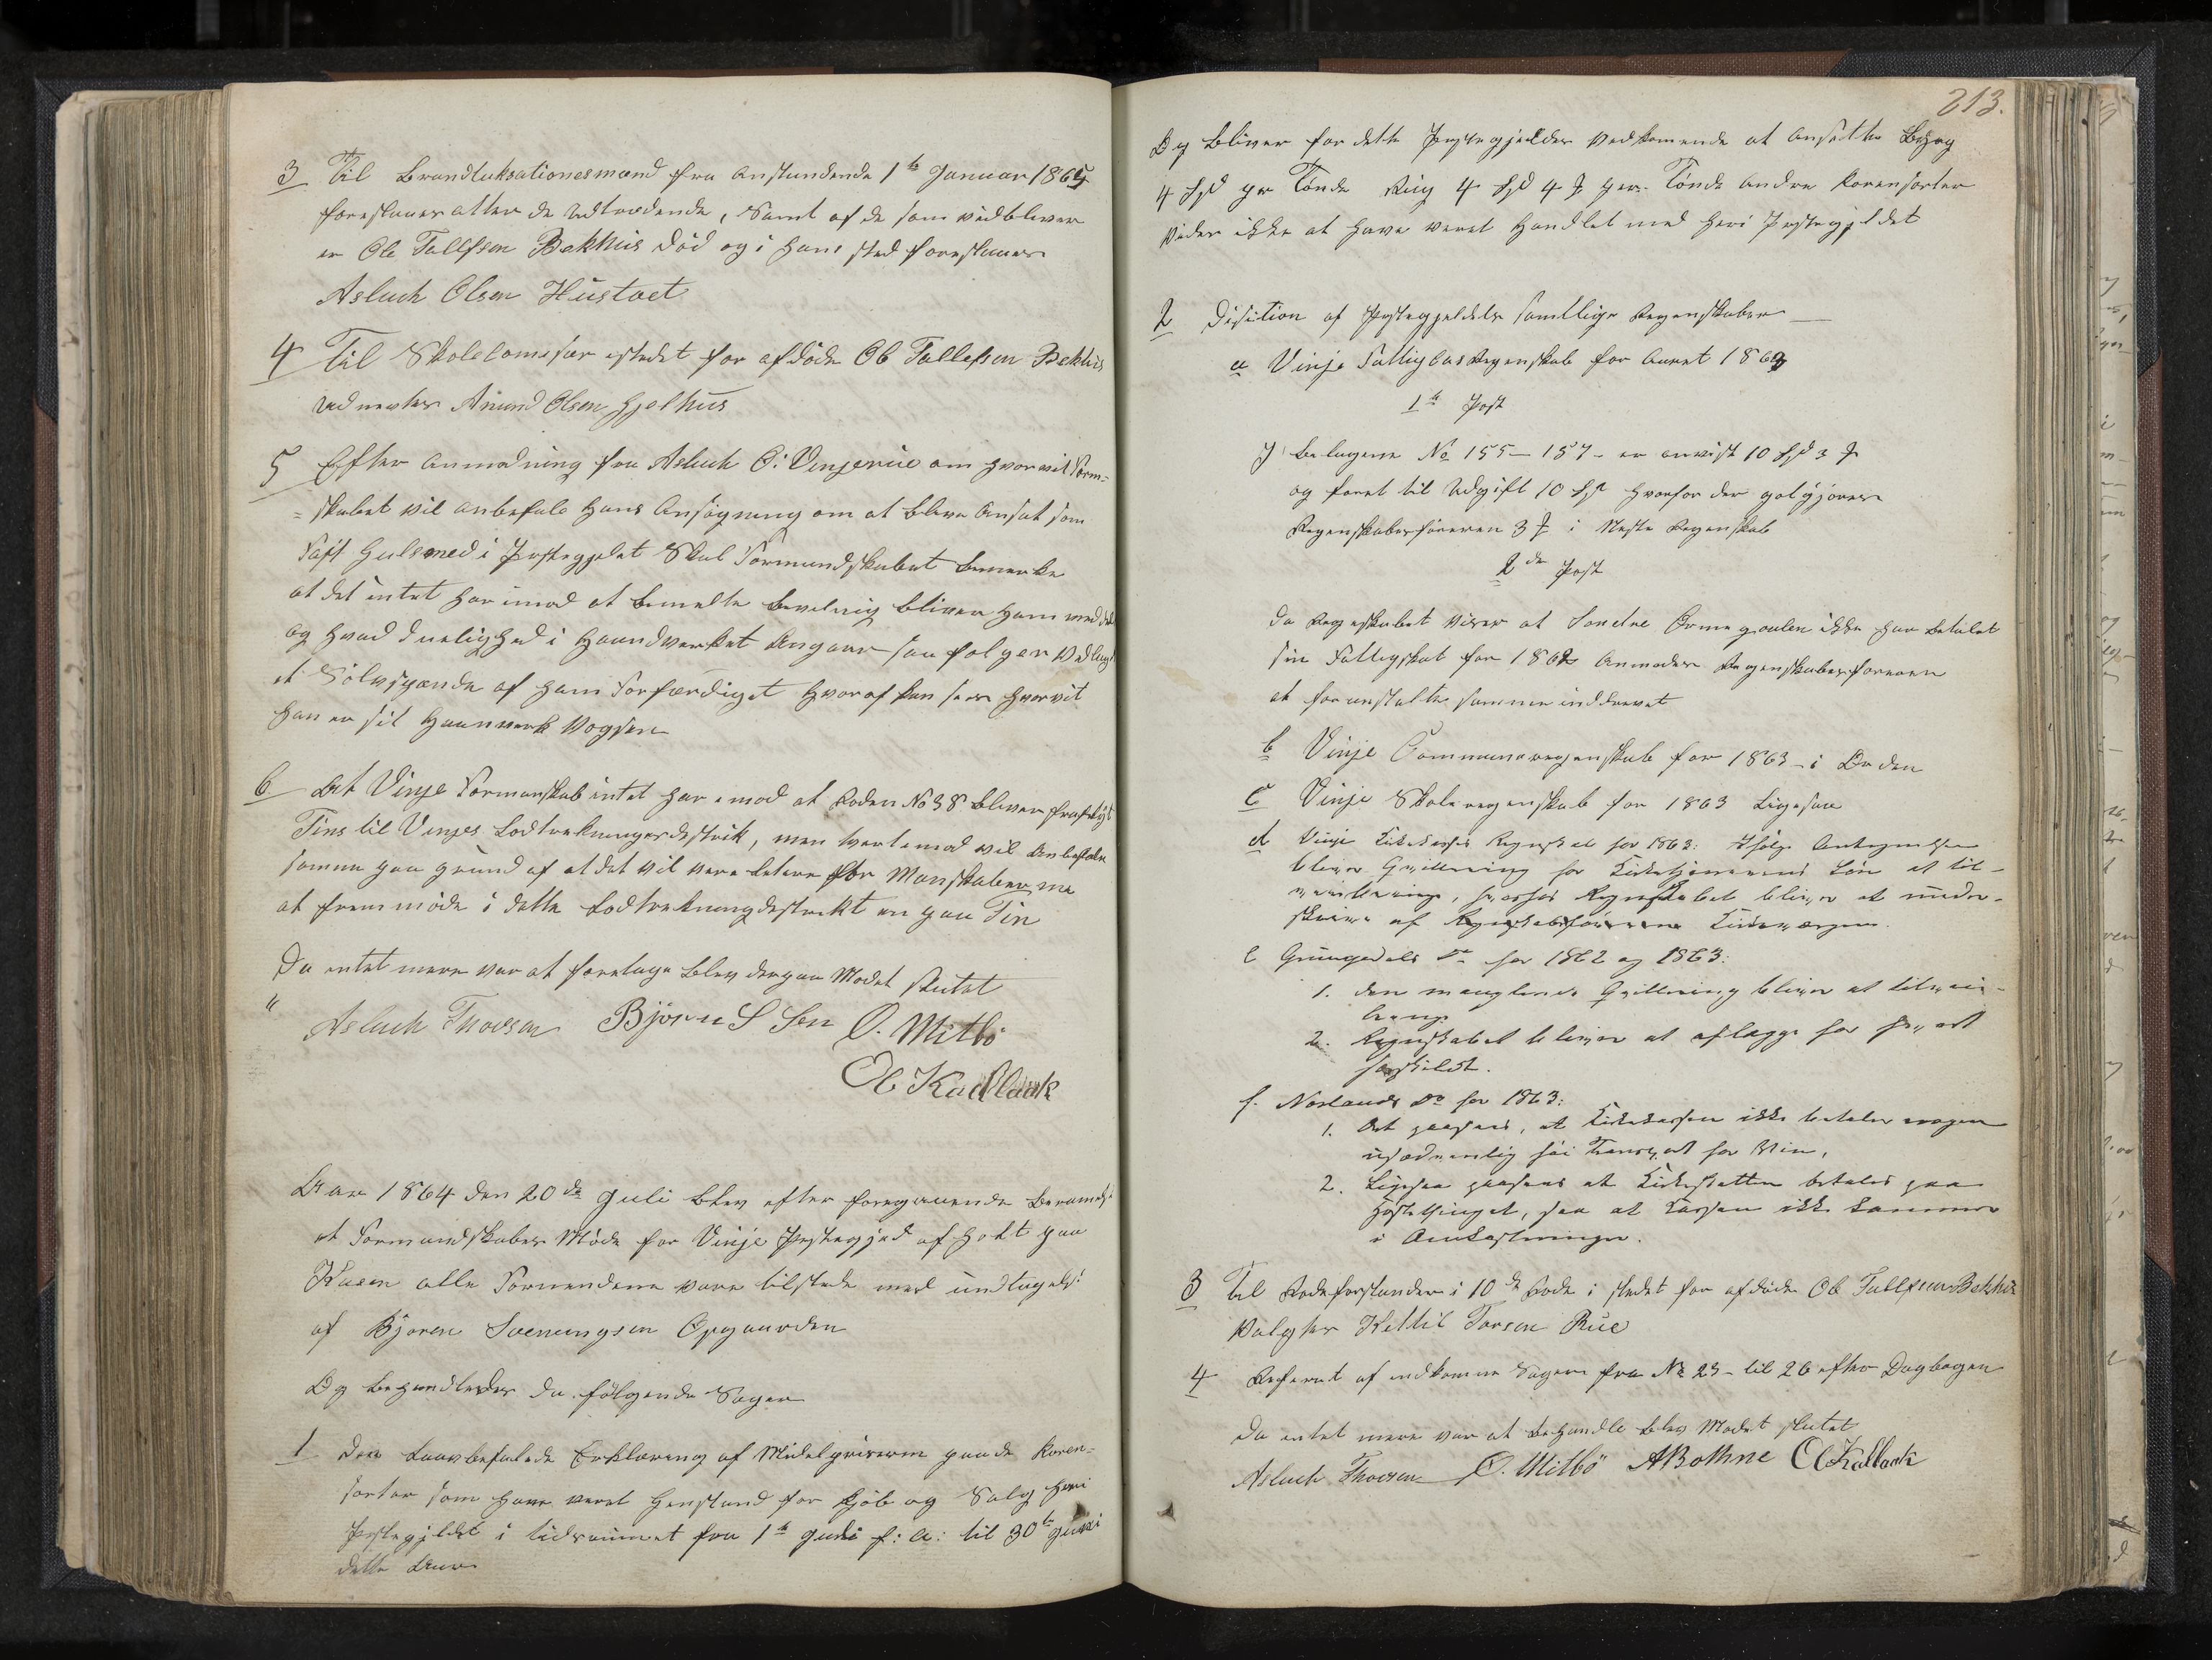 3 Til Brandtaksationesmænd fra anstundende 1te Januar 1865
foreslaaes atter de Udtrædende, samt af de som vedbliver
er Ole Tallefsen Bekhus död og i hans sted foreslaaes
Asluch Olsen Hustvet
4 Til Skolecomisær istedet for afdöde Ole Tallefsen Bekhus
udnævntes Anund Olsen Gjelhus
5 Efter anmodning fra Asluch O: Vinjerue om hvorvit Form-
=skabet vil anbefale hans Ansögning om at blive Ansat som
Fast Gulsmed i Prestegjelet Skal Formandskabet bemerke
at det intet har imod at bemelte bevelnig bliver ham meddelt
og hvad duelighed i Haandverket Angaar saa folger Vedlagt
et Sölvspænde af ham Forfærdiget hvoraf kan sees hvorvit
han er sit Haanverk Vogsen
6 At Vinje Formanskab intet har imod at Roden No 38 bliver fraskilt
Tins til Vinjes Lodtrekningesdestrik, men tvertimod vil Anbefale
samme paa grund af at det vil vere lettere for Manskaberne
at fremmöde i dette Lodtrekningdestrikt en paa Tin
Da intet mere var at foretage blev dergaa Modet slutet
Asluch Thovsen Björn S Sen O. Mitbö
Ol Kadlaak
Aar 1864 den 20de Juli blev efter foregaaende Berammelse
et Formandskabes Möde for Vinje Prestegjed afholdt paa
Kasen alle Formendene vare tilstede med undtagelse
af Bjoren Svenungsen Opgaarden
Og behandledes da fölgende Sager
1 Den Laavbefalede Erklæring af Midelpriserne paa de Koren-
sorter som have været Genstand for Kjöb og Salg heri
Prestegjeldet i tidsrummet fra 1te Juli f: a: til 30te Juni
dette Aar
213.
Og bliver for dette Prestegjeldes vedkomende at ansette Bÿg
4 Spd pr Tönde Rug 4 Spd 4 ꝟ per. Tönde Andre Korensorter
vides ikke at have veret Handlet med heri Prestegjeldet
2 Disition af Prestegjeldets samtlige Regenskaber
a Vinje Fattigcasregenskab for Aaret 1863
1te Post
I belagene No 155-157- er anvist 10 Spd 3 ꝟ
og foret til Udgift 10 Spd hvorfor der godtgjores
Regenskabesföreren 3 ꝟ i Neste Regenskab
2den Post
Da Regnskabet viser at Sondre Ormegraven ikke har betalet
sin Fattigskat for 1862 Anmodes Regenskabesforeren
at foranstalte samme inddrevet
b Vinje Communeregenskab for 1863 - i Orden
c Vinje Skoleregenskab for 1863 Ligesaa
d Vinje Kirkekasses Regnskab for 1863: Ifölge Antegnelsen
bliver Qvittering for Kirketjenerens Lön at til-
veiebringe, hvorhos Regnskabet bliver at under-
skrive af Regnskabsförerne Kirkeværgerne.
e Grungedals Do for 1862 og 1863:
1. Den manglende Qvittering bliver at tilveie-
bringe
2. Regnskabet bliver at aflægge for hvert
særskildt.
f. Næslands Do for 1863:
1. At paasees, at Kirkekassen ikke betaler nogen
usædvanlig höi Transport for Vin,
2. Ligesaa paasees at Kirkeskatten betales paa
Höstethinget, saa at Kassen ikke kommer
i Omkostninger.
3 Til Rodeforstander i 10de Rode i stedet for afdöde Ole Tallefsen Bekhus
Valgtes Kettil Torsen Rue
4 Referat af indkomne Sager fra No 23 - til 26 efter Dagbogen
Da intet mere var at behandle blev Modet slutet
Asluch Thovsen O. Mitbö ABothne Ol Kadlaak